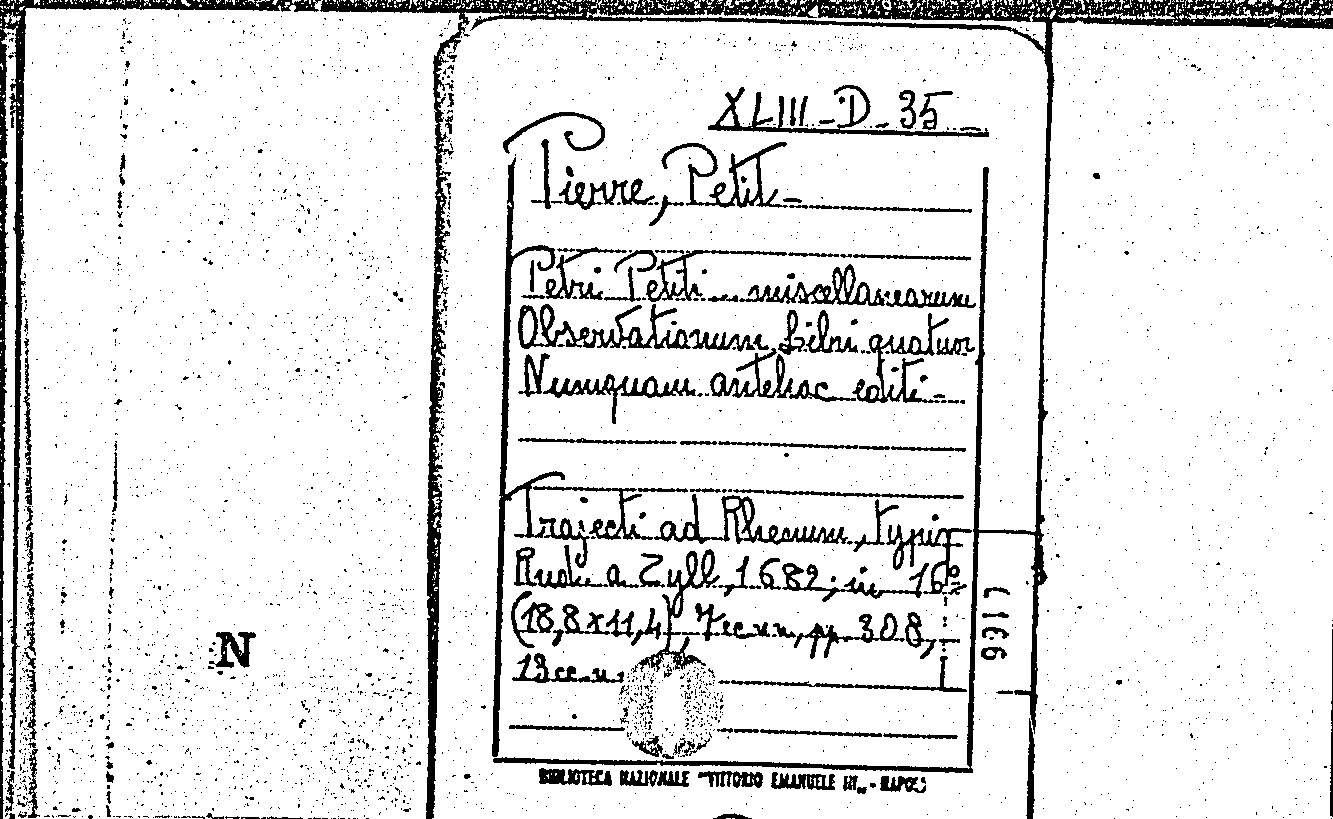 XLIII-D-35
Pierre, Petit-
Petri Petiti... miscellanearum
Observationum Libri quatuor
Numquam antehac editi-
Trajecti ad Rhenum, typis
Rud. a Zyll, 1682; in 16º
(18,8x11,4), 7 cc.nn, pp. 308,
13 cc.n.
N
BIBLIOTECA NAZIONALE "VITTORIO EMANUELE III" - NAPOLI